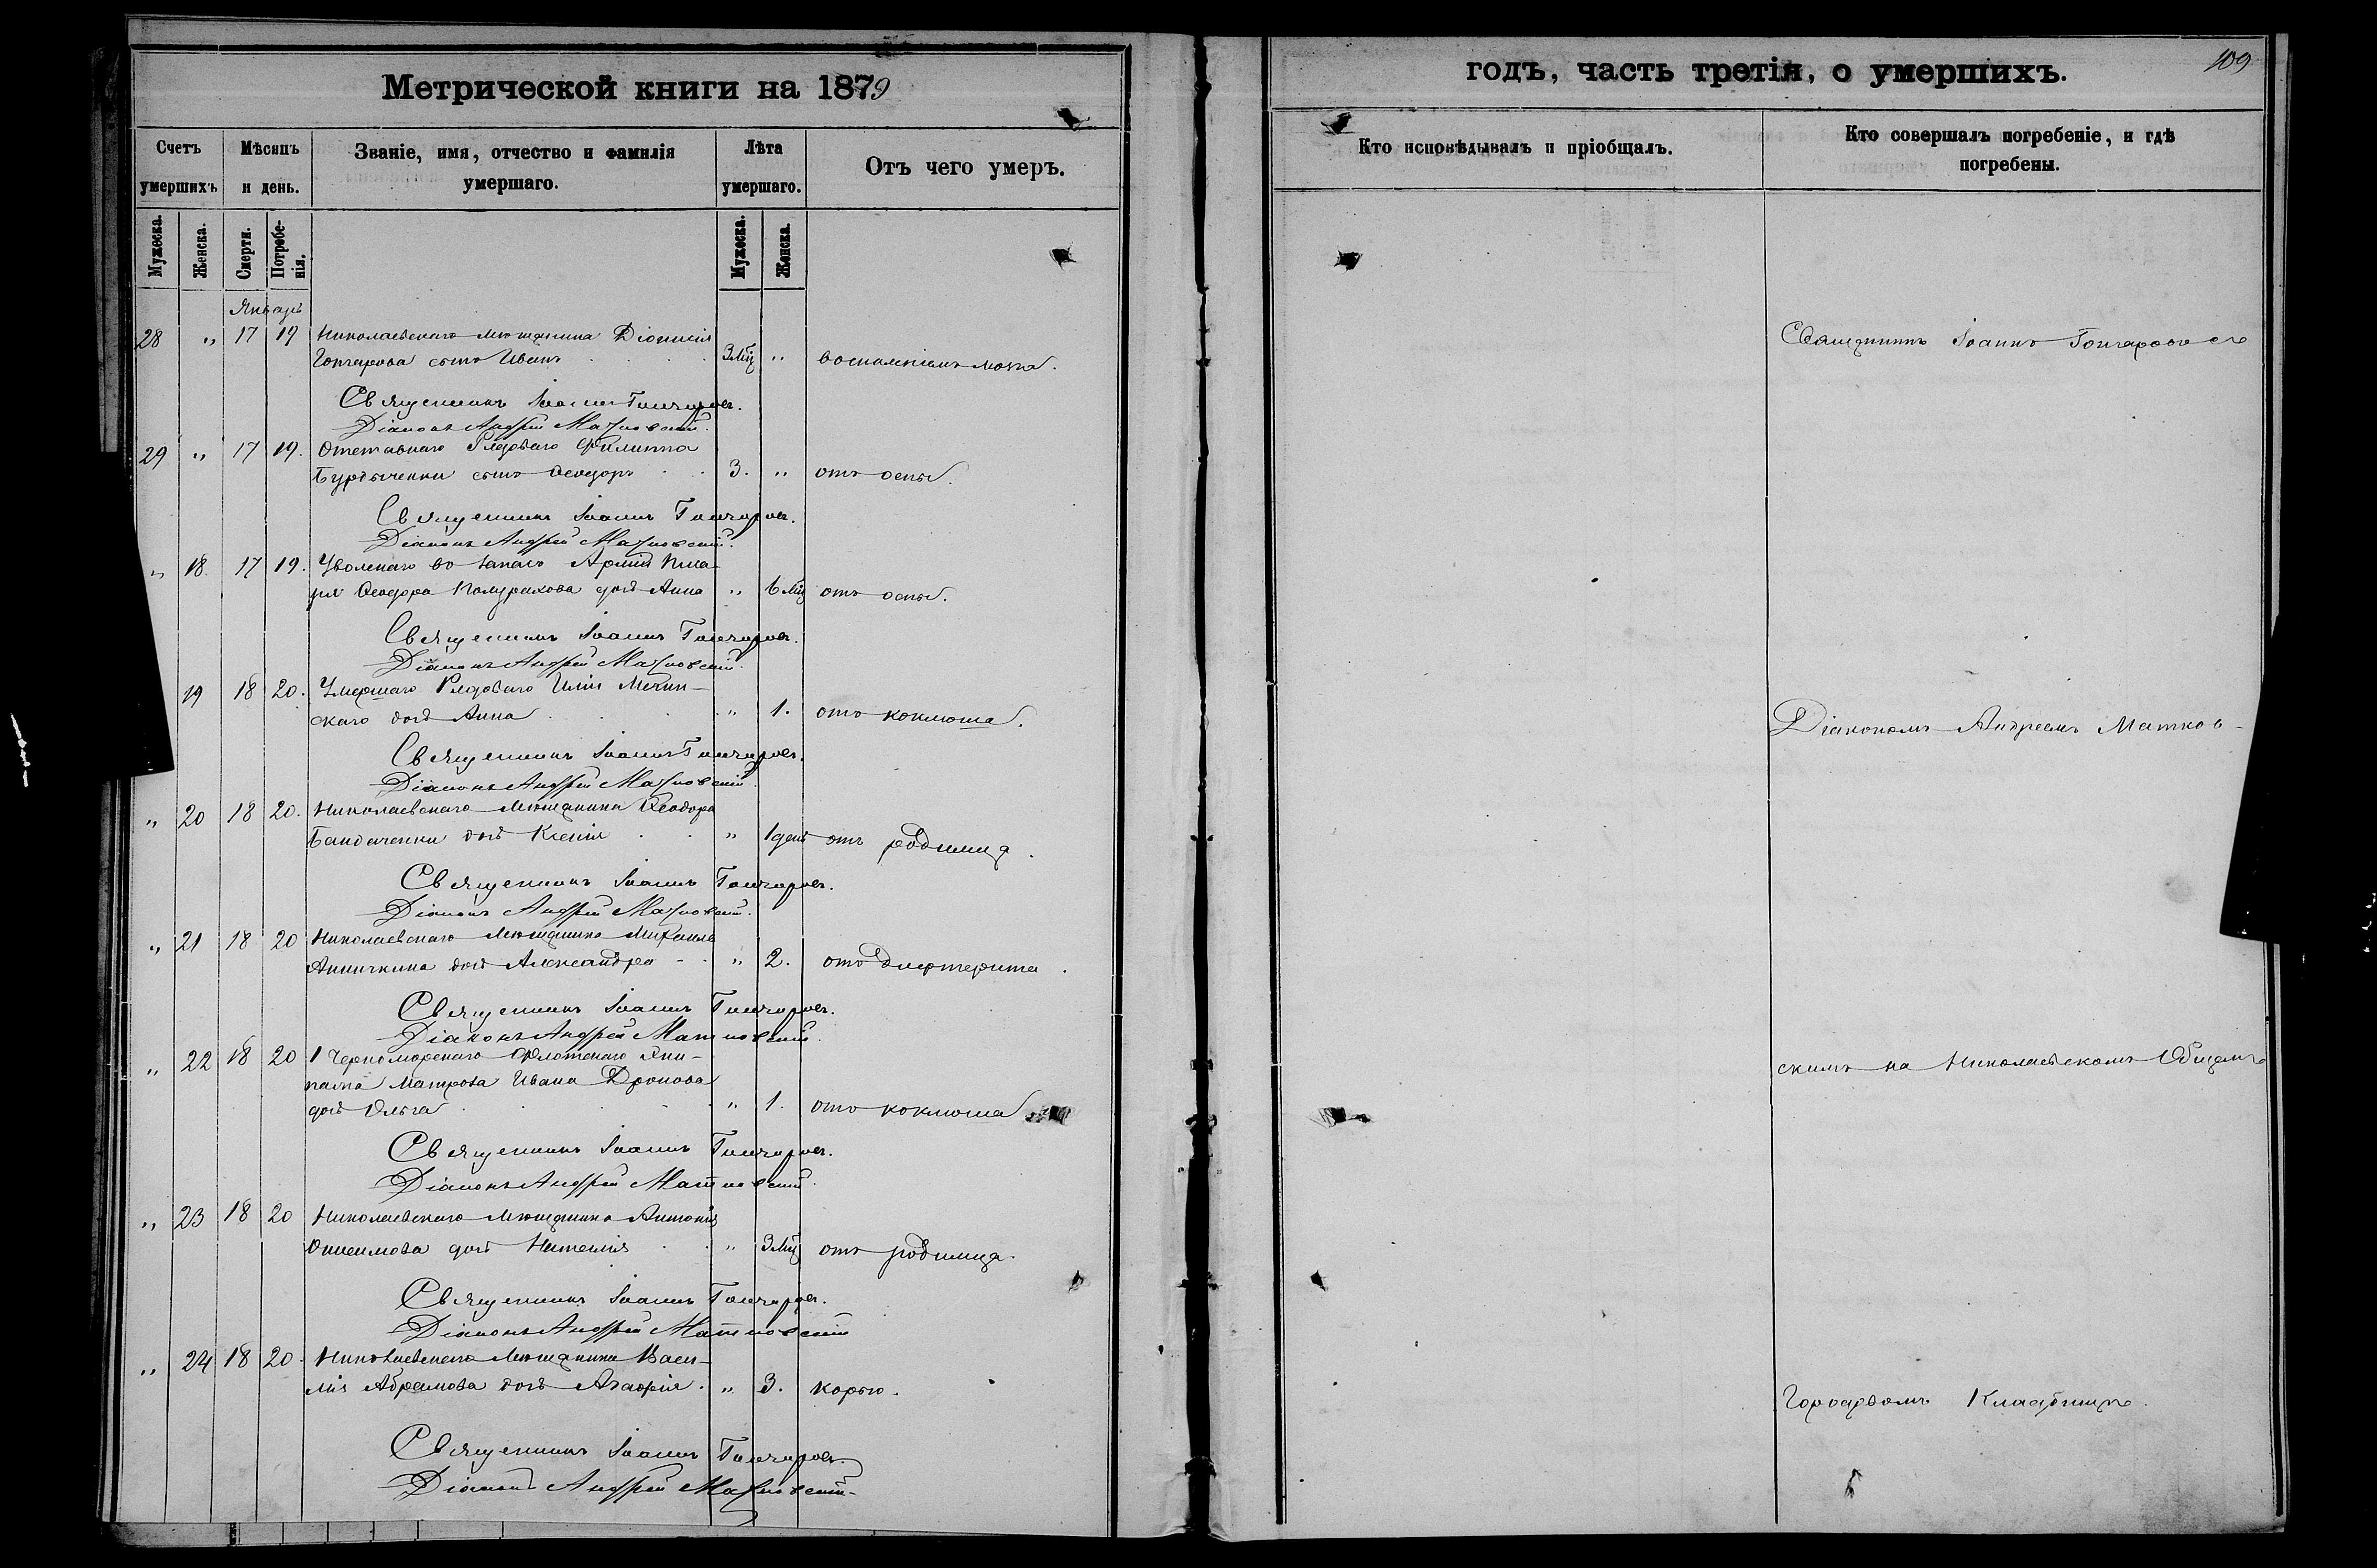 Метрической книги на 1879
Счетъ умершихъ
Мѣсяцъ и день.
Званіе, имя, отчество и фамилія умершаго.
Лѣта умершаго.
Отъ чего умеръ.
Мужеска.
Женска.
Смерти.
Погребенія.
Мужеска.
Женска.
Январь
28 " 17 19 Николаевскаго мѣщанина Діонисія
Гончарова сынъ Иванъ 3 мц " воспаленіемъ мозга.
Священникъ Іоаннъ Гончаровъ.
Діаконъ Андрей Матковскій.
29 " 17 19. Отставнаго Рядоваго Филиппа
Бурдыченки сынъ Ѳеодоръ 3. " отъ оспы.
Священникъ Іоаннъ Гончаровъ.
Діаконъ Андрей Матковскій.
" 18. 17 19. Уволенаго во запасъ Арміи
Ѳеодора дочь Анна " 6 мц отъ оспы.
Священникъ Іоаннъ Гончаровъ.
Діаконъ Андрей Матковскій.
19 18 20. Умершаго Рядоваго Иліи Мечин-
скаго дочь Анна " 1. отъ коклюша.
Священникъ Іоаннъ Гончаровъ.
Діаконъ Андрей Матковскій.
" 20 18 20. Николаевскаго мѣщанина Ѳеодора
дочь Ксенія " 1 день отъ родимца.
Священникъ Іоаннъ Гончаровъ.
Діаконъ Андрей Матковскій.
" 21 18 20 Николаевскаго мѣщанина Михаила
Аничкина дочь Александра " 2. отъ дифтерита.
Священникъ Іоаннъ Гончаровъ.
Діаконъ Андрей Матковскій.
" 22 18 20 1 Черноморскаго Флотскаго Эки-
пажа Матроса Ивана Дронова
дочь Ольга " 1. отъ коклюша
Священникъ Іоаннъ Гончаровъ.
Діаконъ Андрей Матковскій.
" 23 18 20 Николаевскаго мѣщанина Антонія
Онисимова дочь Наталія " 3 мц отъ родимца.
Священникъ Іоаннъ Гончаровъ.
Діаконъ Андрей Матковскій
" 24 18 20. Николаевскаго мѣщанина Васи-
лія Абрамова дочь Агафія. " 3. корью.
Священникъ Іоаннъ Гончаровъ.
Діаконъ Андрей Матковскій.
годъ, часть третія, о умершихъ.
109
Кто исповѣдывалъ и пріобщалъ.
Кто совершалъ погребеніе, и гдѣ погребены.
Священникъ Іоаннъ Гончаровъ съ
Діакономъ Андреемъ Матков-
скимъ на Николаевскомъ Общемъ
Городскомъ Кладбищѣ.